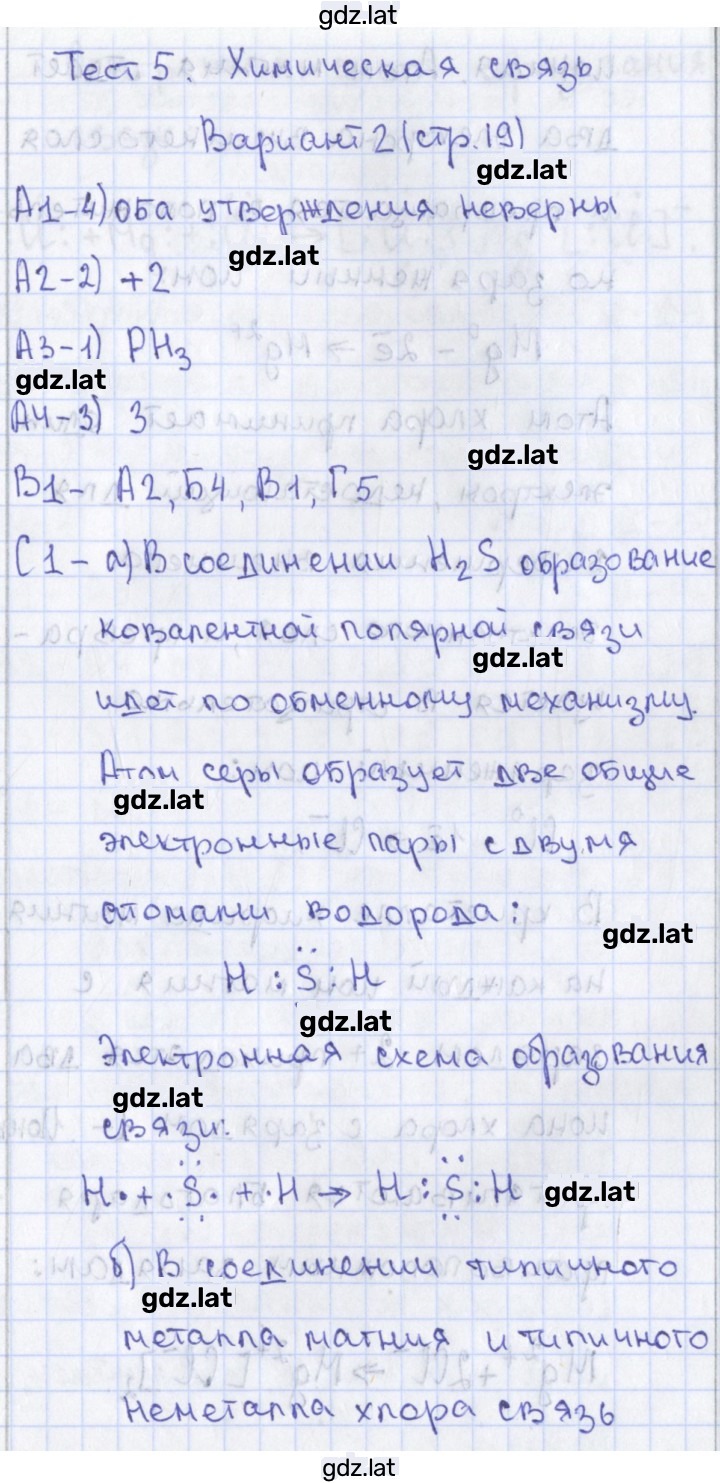 gdz.lat
Тест 5. Химическая связь
Вариант 2 (стр. 19)
gdz.lat
А1-4) оба утверждения неверны
gdz.lat
А2-2) +2
А3-1) PH3
gdz.lat
А4-3) 3
gdz.lat
В1- А2, Б4, В1, Г5
С1- а) В соединении H2S образование
ковалентной полярной связи
gdz.lat
идет по обменному механизму.
Атом серы образует две общие
gdz.lat
электронные пары с двумя
атомами водорода:
gdz.lat
H : S : H
gdz.lat
Электронная схема образования
gdz.lat
связи:
H· + ·S· + ·H → H : S : H
gdz.lat
б) В соединении типичного
gdz.lat
металла магния и типичного
неметалла хлора связь
gdz.lat